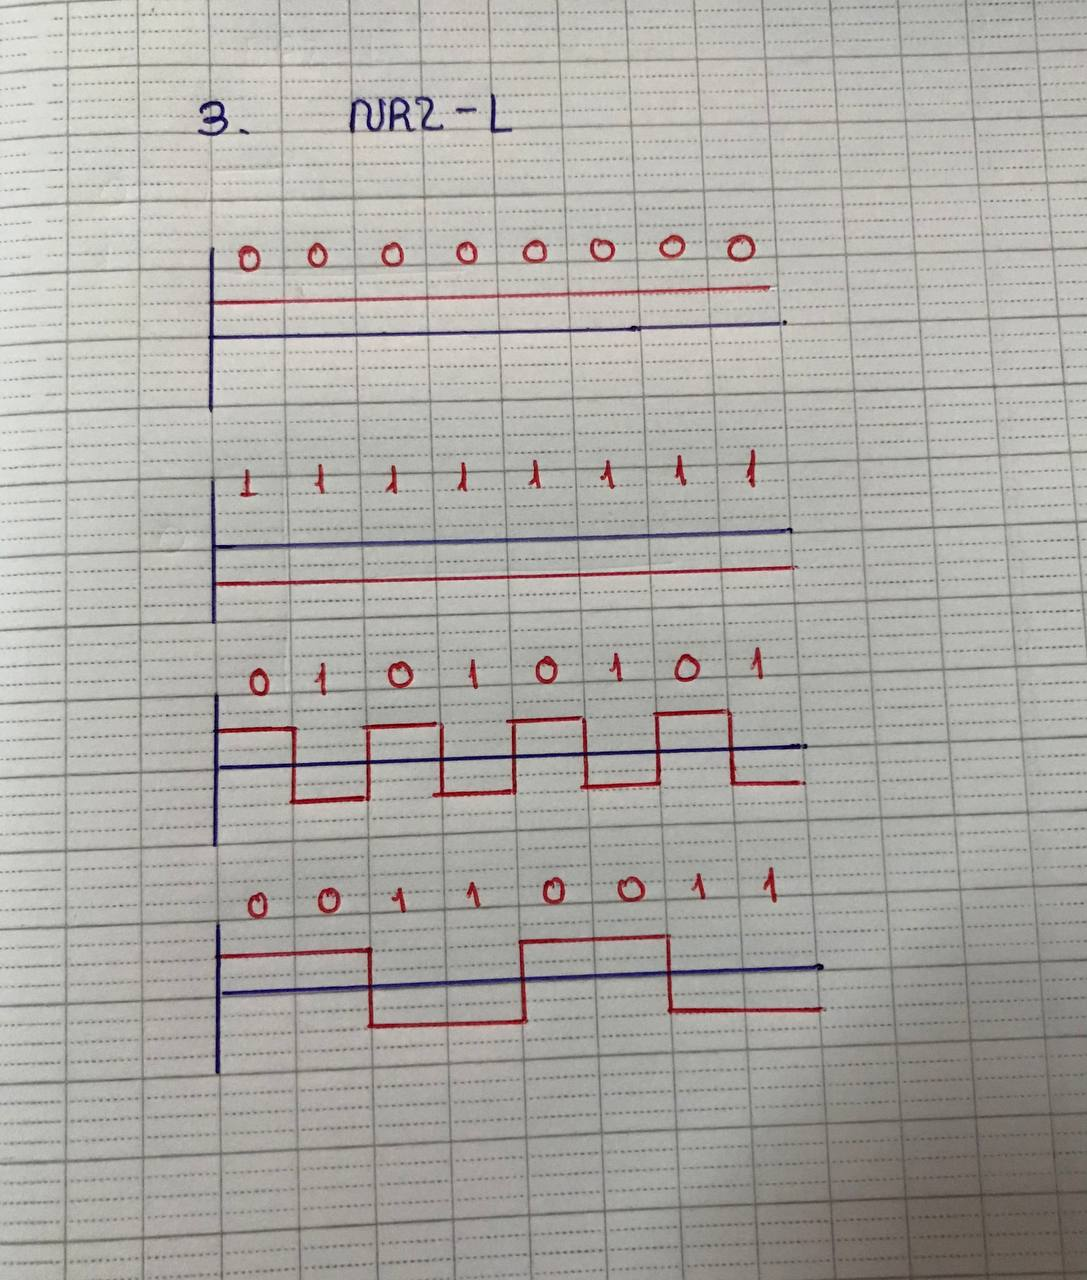 3. NRZ-L
0 0 0 0 0 0 0 0
1 1 1 1 1 1 1 1
0 1 0 1 0 1 0 1
0 0 1 1 0 0 1 1